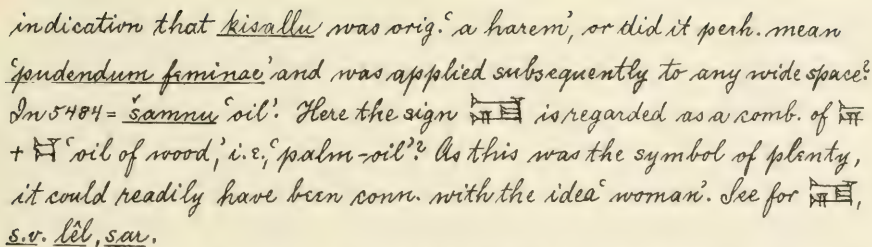 indication that kisallu was orig. ‘a harem’, or did it perh. mean
‘pudendum feminae’ and was applied subsequently to any wide space?
In 5484 = šamnu ‘oil’. Here the sign is regarded as a comb. of
+ ‘oil of wood,’ i.e., ‘palm-oil’? As this was the symbol of plenty,
it could readily have been conn. with the idea ‘woman’. See for ,
s.v. lêl, sar.